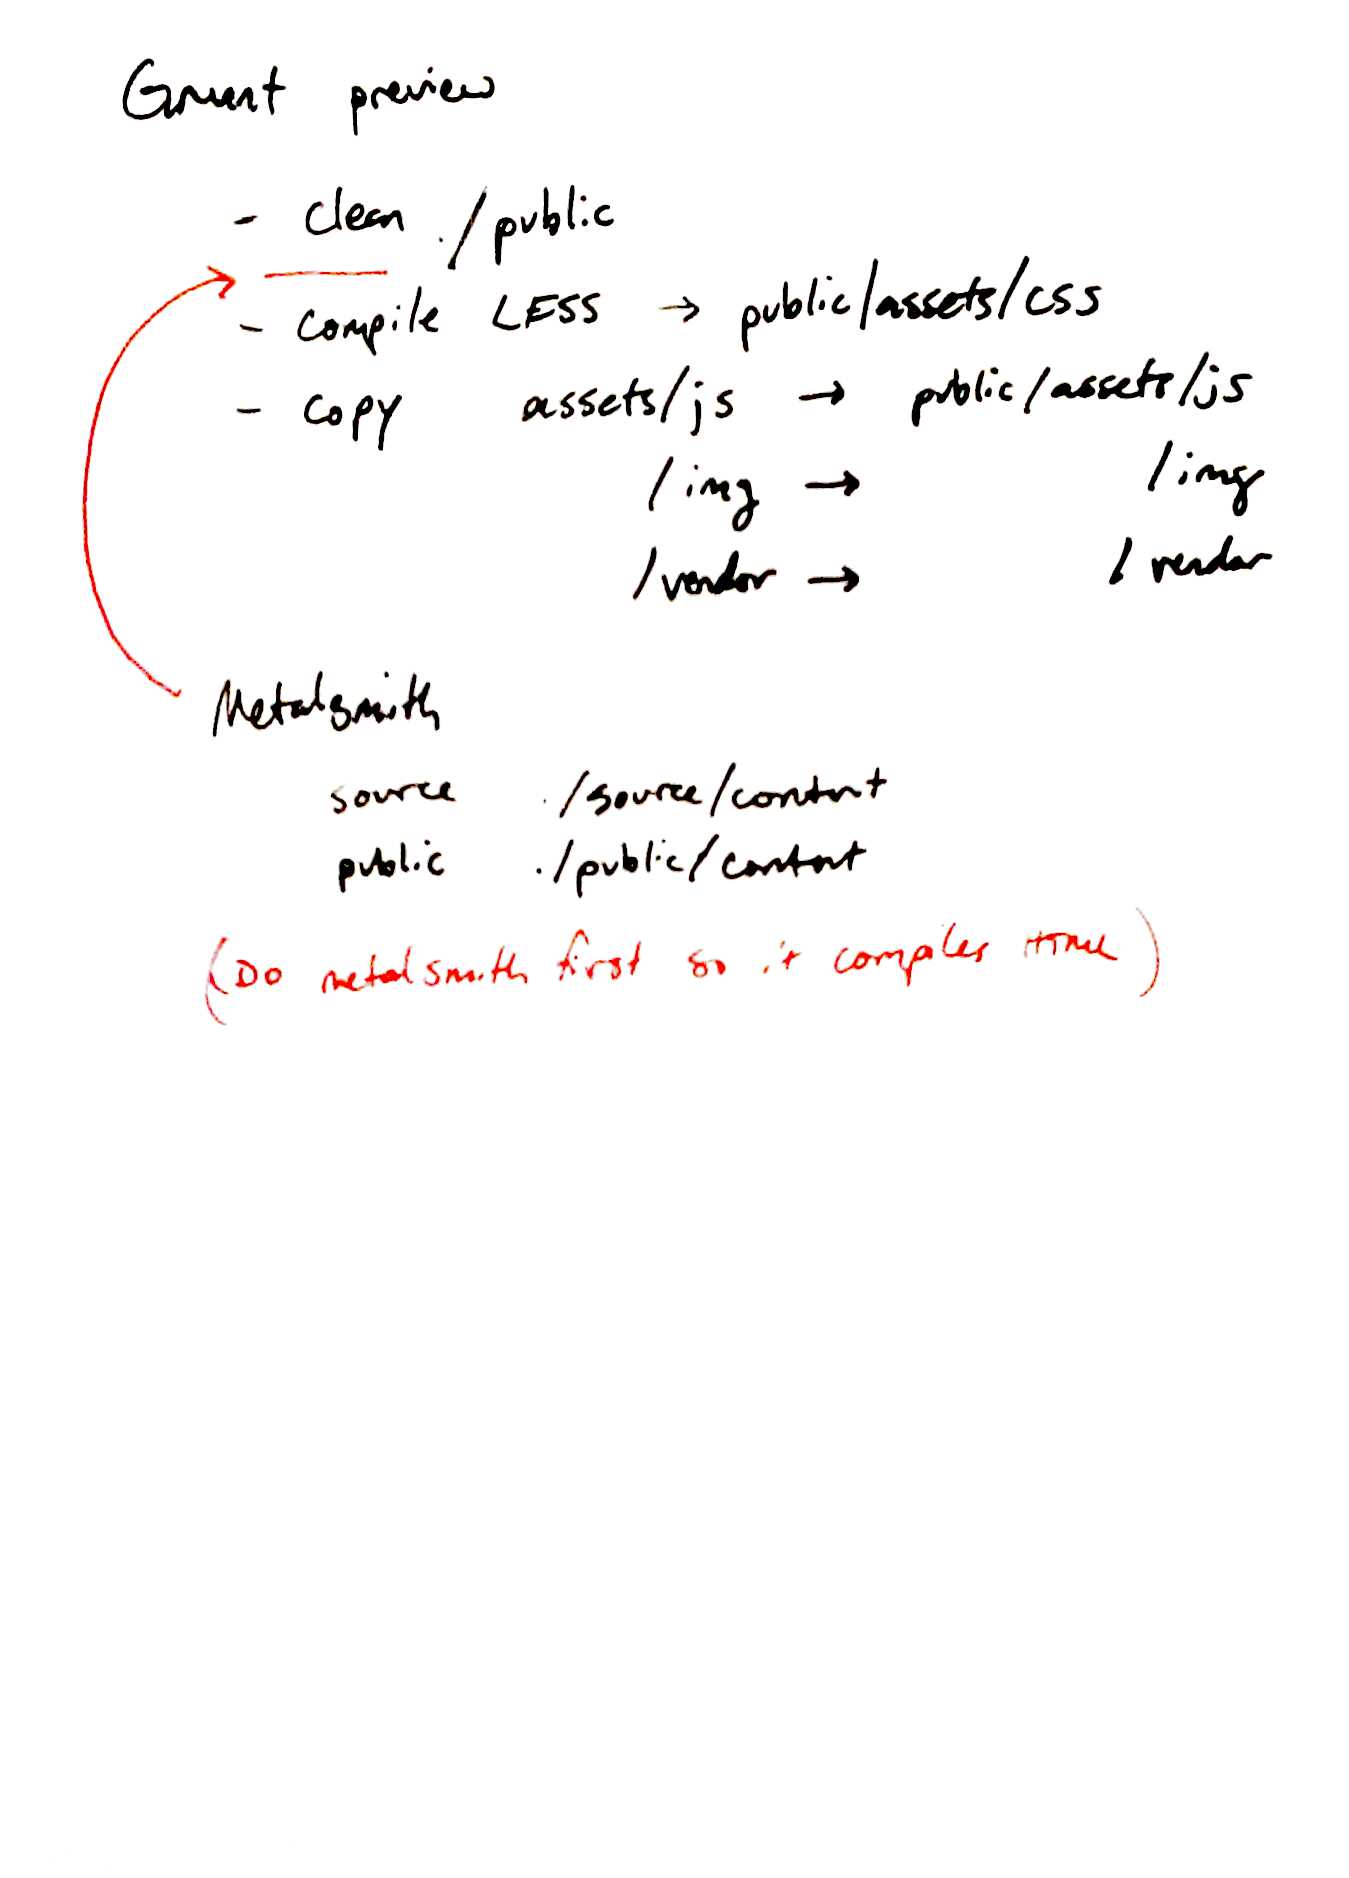 Grunt preview
- clean ./public
- compile LESS → public/assets/css
- copy assets/js → public/assets/js
/img → /img
/vendor → /vendor
Metalsmith
source ./source/content
public ./public/content
(Do metalsmith first so it compiles HTML)